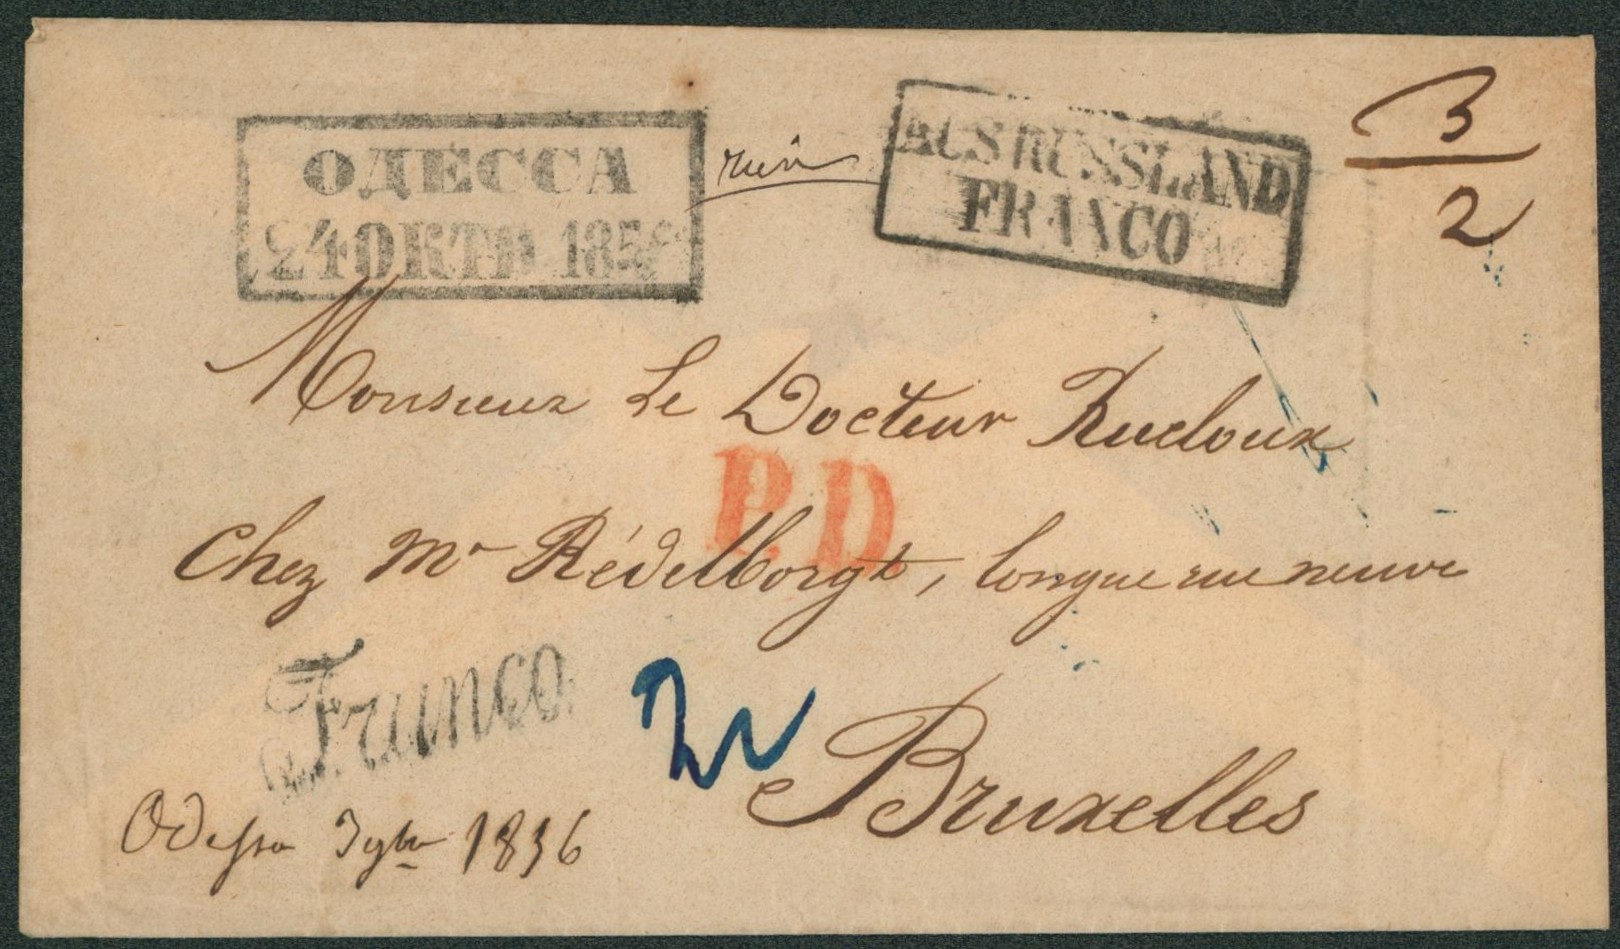 ОДЕССА
24 ОКТЯ 185
AUS RUSSLAND
FRANCO
3
2
Monsieur Le Docteur Rucloux
P.D.
Chez Mr Rédelborgt, longue rue neuve
Franco.
2
Bruxelles
Odessa 1856